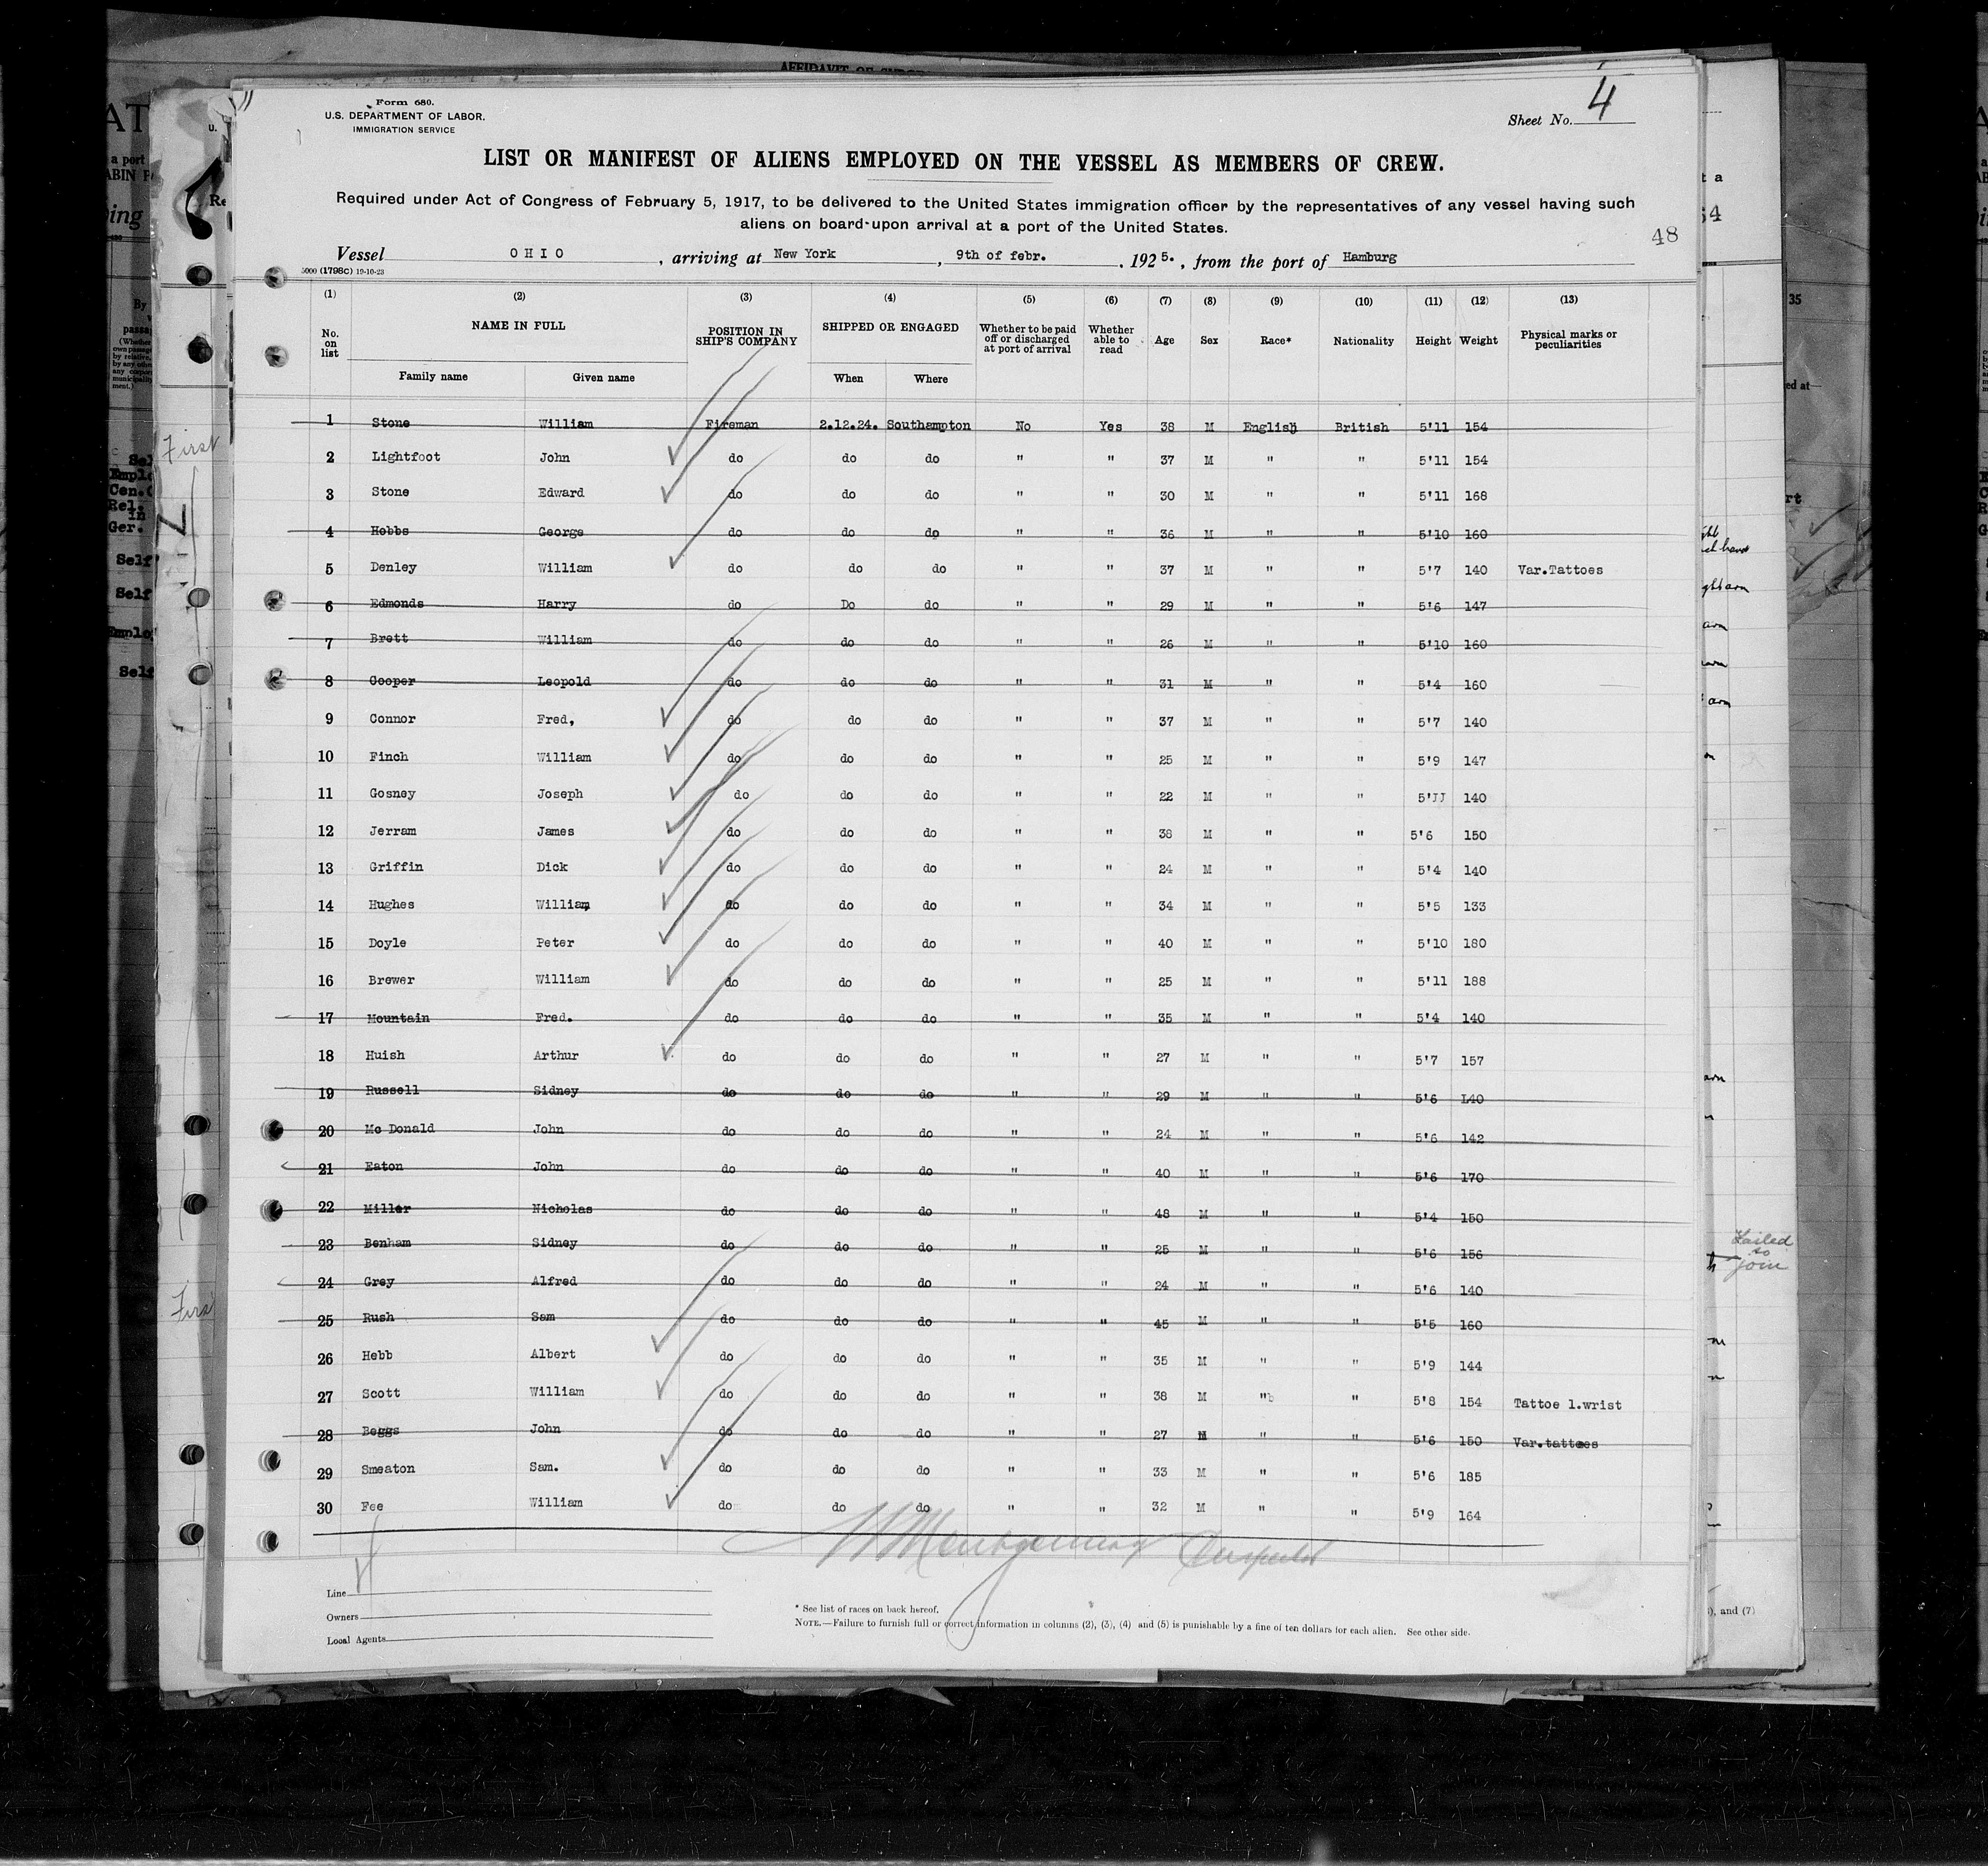 Form 680.
U.S. DEPARTMENT OF LABOR.
IMMIGRATION SERVICE
Sheet No. 4
LIST OR MANIFEST OF ALIENS EMPLOYED ON THE VESSEL AS MEMBERS OF CREW.
Required under Act of Congress of February 5, 1917, to be delivered to the United States immigration officer by the representatives of any vessel having such
aliens on board upon arrival at a port of the United States.
48
Vessel OHIO, arriving at New York, 9th of febr., 1925., from the port of Hamburg
5000 (1798C) 19-10-23
(1) (2) (3) (4) (5) (6) (7) (8) (9) (10) (11) (12) (13)
No. on list NAME IN FULL POSITION IN SHIP'S COMPANY SHIPPED OR ENGAGED Whether to be paid off or discharged at port of arrival Whether able to read Age Sex Race* Nationality Height Weight Physical marks or peculiarities
Family name Given name When Where
1 Stone William Fireman 2.12.24. Southampton No Yes 38 M English British 5'11 154
2 Lightfoot John do do do " " 37 M " " 5'11 154
3 Stone Edward do do do " " 30 M " " 5'11 168
4 Hobbs George do do do " " 36 M " " 5'10 160
5 Denley William do do do " " 37 M " " 5'7 140 Var.Tattoes
6 Edmonds Harry do Do do " " 29 M " " 5'6 147
7 Brett William do do do " " 26 M " " 5'10 160
8 Cooper Leopold do do do " " 31 M " " 5'4 160
9 Connor Fred, do do do " " 37 M " " 5'7 140
10 Finch William do do do " " 25 M " " 5'9 147
11 Gosney Joseph do do do " " 22 M " " 5'JJ 140
12 Jerram James do do do " " 38 M " " 5'6 150
13 Griffin Dick do do do " " 24 M " " 5'4 140
14 Hughes William do do do " " 34 M " " 5'5 133
15 Doyle Peter do do do " " 40 M " " 5'10 180
16 Brewer William do do do " " 25 M " " 5'11 188
17 Mountain Fred. do do do " " 35 M " " 5'4 140
18 Huish Arthur do do do " " 27 M " " 5'7 157
19 Russell Sidney do do do " " 29 M " " 5'6 L40
20 Mc Donald John do do do " " 24 M " " 5'6 142
21 Eaton John do do do " " 40 M " " 5'6 170
22 Miller Nicholas do do do " " 48 M " " 5'4 150
23 Benham Sidney do do do " " 25 M " " 5'6 156
24 Grey Alfred do do do " " 24 M " " 5'6 140
25 Rush Sam do do do " " 45 M " " 5'5 160
26 Hebb Albert do do do " " 35 M " " 5'9 144
27 Scott William do do do " " 38 M " " 5'8 154 Tattoe l.wrist
28 Beggs John do do do " " 27 M " " 5'6 150 Var.tattoes
29 Smeaton Sam. do do do " " 33 M " " 5'6 185
30 Fee William do do do " " 32 M " " 5'9 164
Montgomery Inspector
Line
Owners
Local Agents
* See list of races on back hereof.
NOTE.—Failure to furnish full or correct information in columns (2), (3), (4) and (5) is punishable by a fine of ten dollars for each alien. See other side.
First
Failed
to
join
, and (7)
35